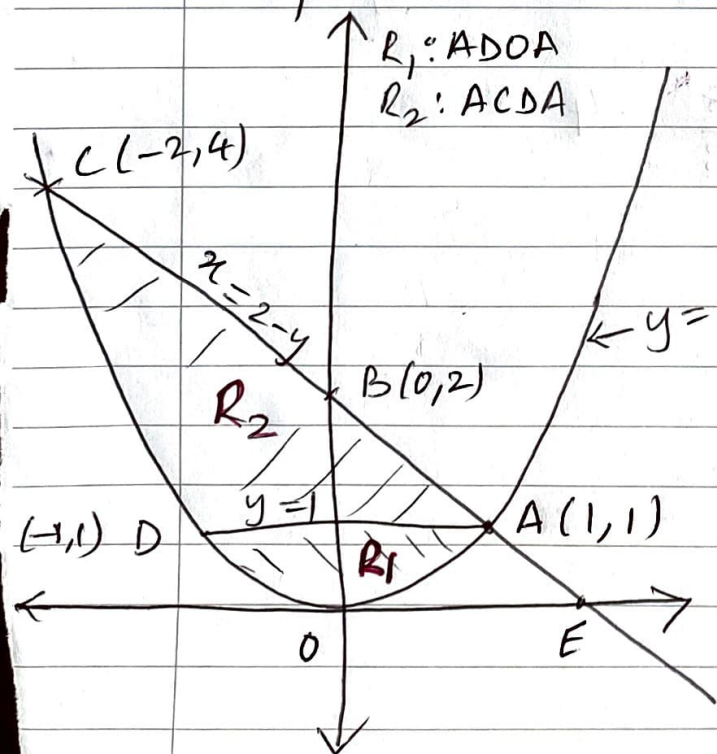 R₁: ADOA
R₂: ACDA
C(-2,4)
x=2-y
y=
B(0,2)
R₂
y=1
(-1,1) D
A(1,1)
R₁
O
E